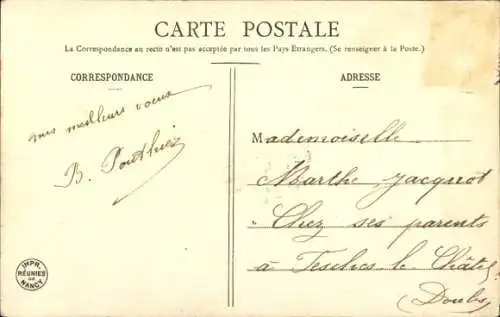 CARTE POSTALE
La Correspondance au recto n'est pas acceptée par tous les Pays Étrangers. (Se renseigner à la Poste.)
CORRESPONDANCE
mes meilleurs voeux
B. Pouthiez
IMPR.
RÉUNIES
DE
NANCY
ADRESSE
Mademoiselle
Marthe Jacquot
Chez ses parents
à Tesches le Châtel
(Doubs)